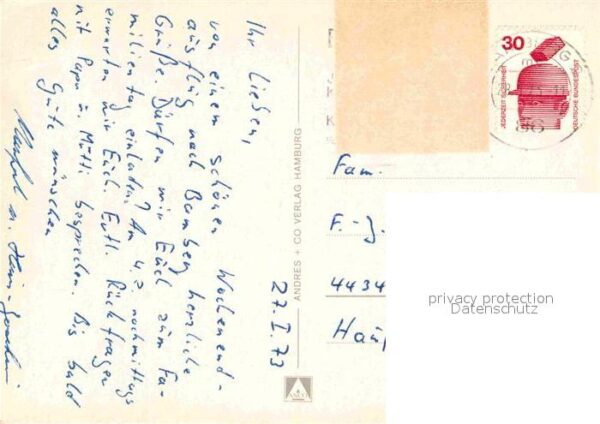 27.I.73
Ihr Lieben,
von einem schönen Wochenend-
ausflug nach Bamberg herzliche
Grüße. Dürfen wir Euch zum Fa-
milientag einladen? Am 4.2. nachmittags
erwarten wir Euch. Evtl. Rückfragen
mit Papa u. Mutti besprechen. Bis bald
alles Gute wünschen
ANDRES + CO VERLAG HAMBURG
ANCO
30
JEDERZEIT SICHERHEIT
DEUTSCHE BUNDESPOST
Fam.
F.-J.
4434
privacy protection
Datenschutz